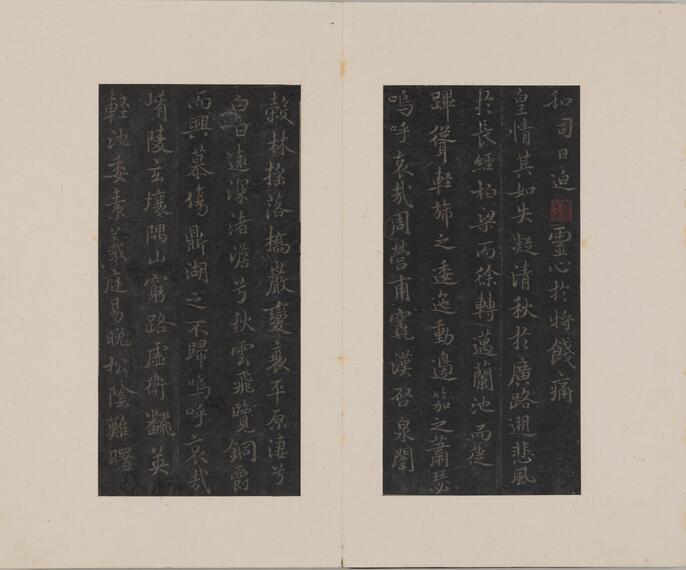 和司日迫靈心於將餞痛
皇情其如失凝清秋於廣路遡悲風
於長經柏梁而徐轉邁蘭池而從
蹕聳輕旆之逶迤動邊笳之蕭瑟
嗚呼哀哉周營甫竁漢啓泉闈
穀林搖落橋巖變衰平原淒兮
白日遠深渚澹兮秋雲飛覽銅爵
而興慕傷鼎湖之不歸嗚呼哀哉
崤陵玄壤隅山窮路虛衛飜英
輕池委素羲庭易晚松陰難曙